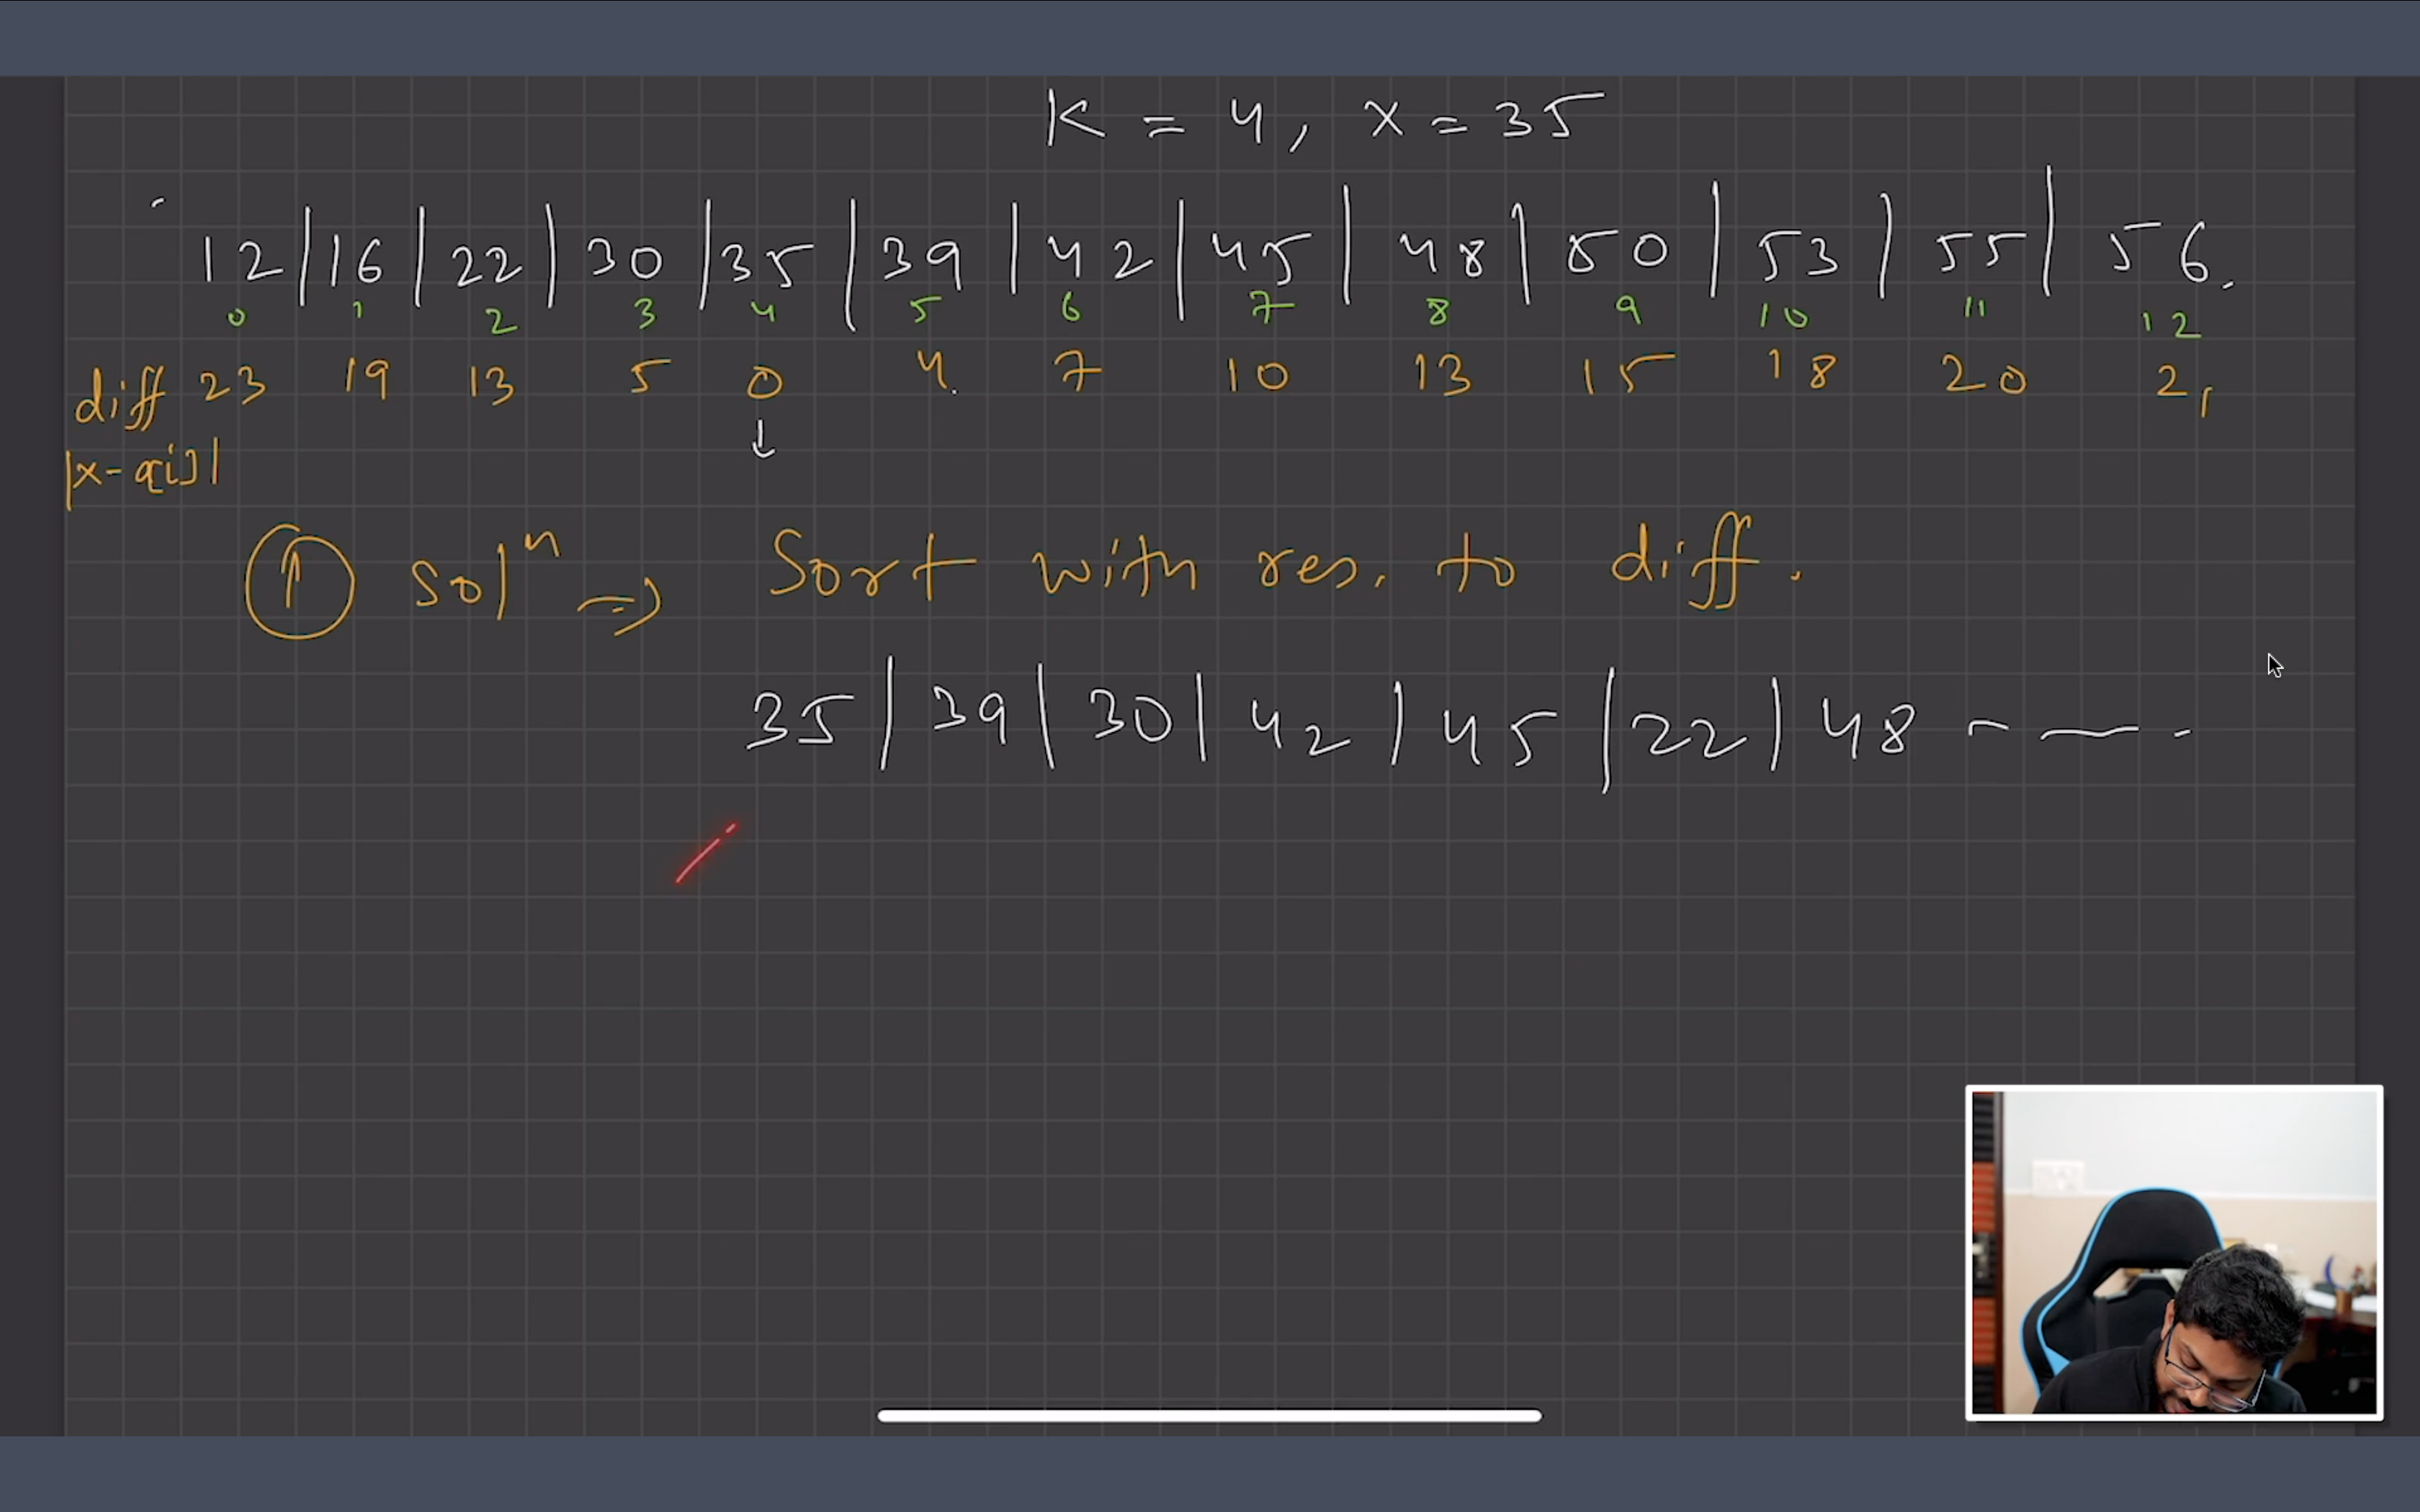 K = 4, x = 35
12 | 16 | 22 | 30 | 35 | 39 | 42 | 45 | 48 | 50 | 53 | 55 | 56.
0 1 2 3 4 5 6 7 8 9 10 11 12
diff 23 19 13 5 0 4. 7 10 13 15 18 20 21
|x-a[i]|
① solⁿ => Sort with res. to diff.
35 | 39 | 30 | 42 | 45 | 22 | 48 - — -